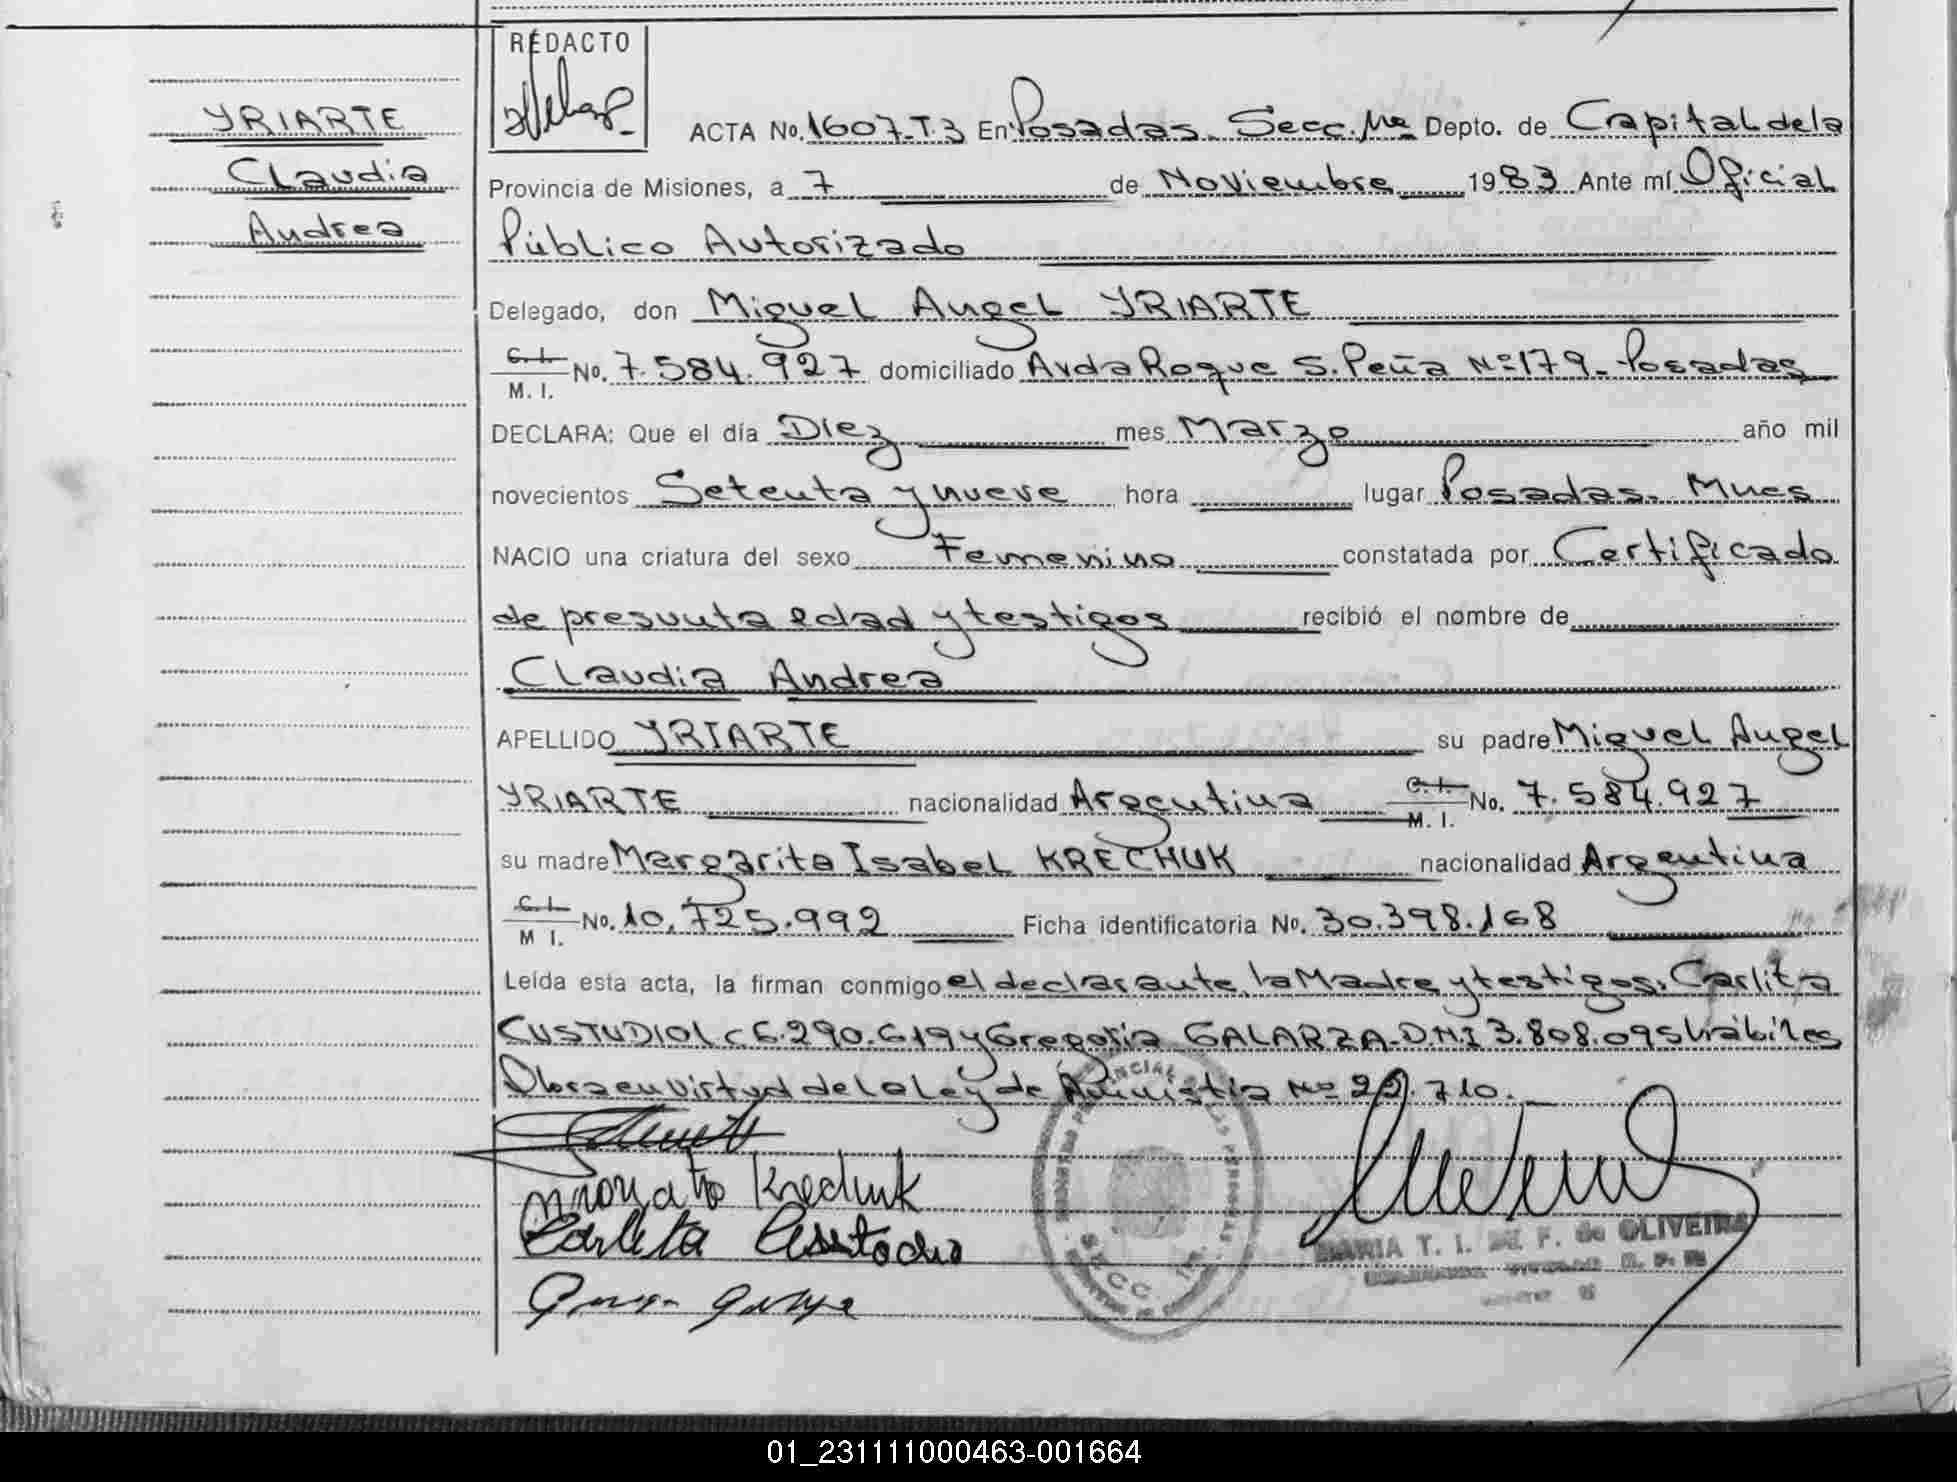 REDACTO
YRIARTE
Claudia
Andrea
ACTA No. 1607-T.3 En Posadas. Secc. 1ra Depto. de Capital de la
Provincia de Misiones, a 7 de Noviembre 1983 Ante mí Oficial
Público Autorizado
Delegado, don Miguel Angel YRIARTE
C. I. M. I. No. 7.584.927 domiciliado Avda Roque S. Peña Nº 179- Posadas
DECLARA: Que el día Diez mes Marzo año mil
novecientos Setenta y nueve hora lugar Posadas. Mnes
NACIO una criatura del sexo Femenino constatada por Certificado
de presunta edad y testigos recibió el nombre de
Claudia Andrea
APELLIDO YRIARTE su padre Miguel Angel
YRIARTE nacionalidad Argentina C. I. M. I. No. 7.584.927
su madre Margarita Isabel KRECHUK nacionalidad Argentina
C. I. M I. No. 10.725.992 Ficha identificatoria No. 30.398.168
Leída esta acta, la firman conmigo el declarante, la Madre y testigos, Carlita
CUSTUDIO L c 6.290.619 y Gregoria GALARZA-D.N.I 3.808.095 hábiles
Obra en virtud de la Ley de Amnistia Nº 22.710.
Krechuk
Carlita
MARIA T. I. DE F. de OLIVEIRA
SECC 1ra.
01_231111000463-001664